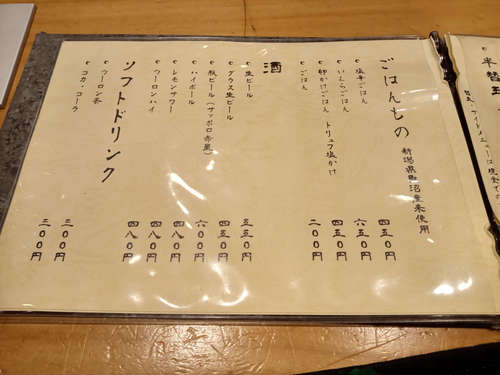 ごはんもの
新潟県魚沼産米使用
塩辛ごはん 四五〇円
いくらごはん 六五〇円
卵かけごはん トリュフ塩かけ 四五〇円
ごはん 二〇〇円
酒
生ビール 五五〇円
グラス生ビール 四五〇円
瓶ビール(サッポロ赤星) 六〇〇円
ハイボール 四八〇円
レモンサワー 四八〇円
ウーロンハイ 四八〇円
ソフトドリンク
ウーロン茶 三〇〇円
コカ・コーラ 三〇〇円